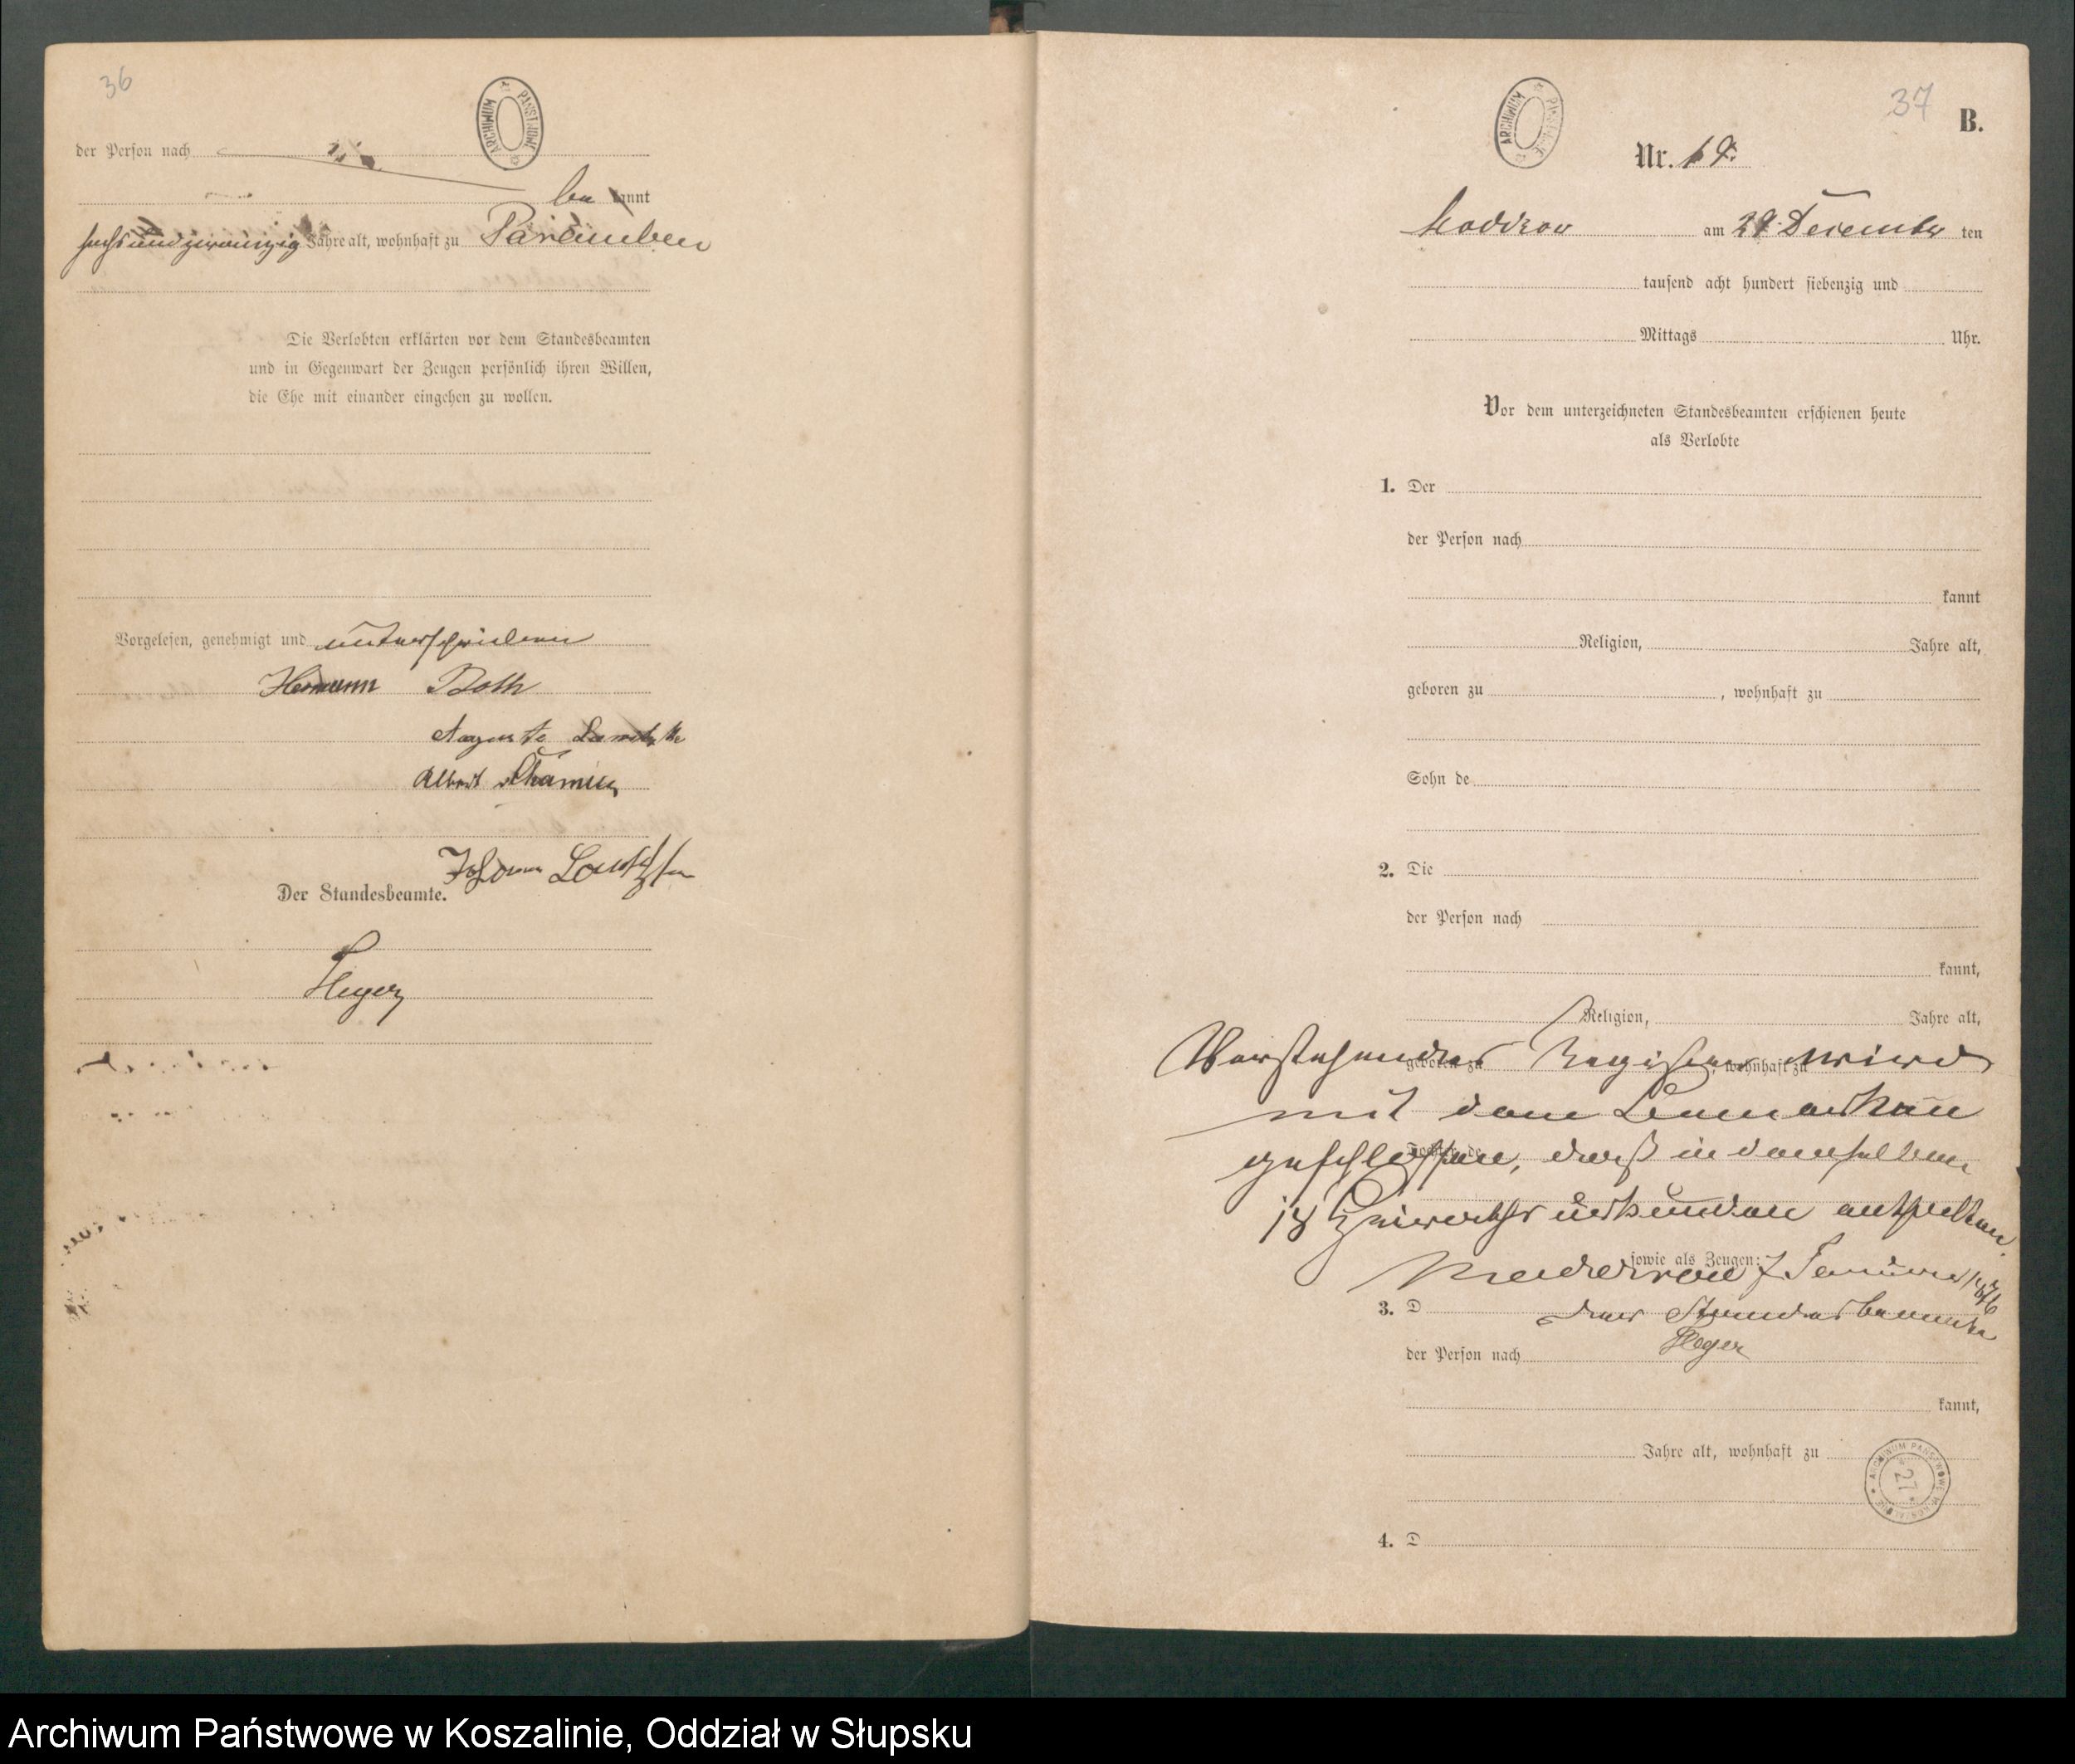 36
ARCHIWUM PAŃSTWOWE
der Person nach
be kannt
sechsundzwanzig Jahre alt, wohnhaft zu
Die Verlobten erklärten vor dem Standesbeamten
und in Gegenwart der Zeugen persönlich ihren Willen,
die Ehe mit einander eingehen zu wollen.
Vorgelesen, genehmigt und unterschrieben
Hermann Both
Auguste
Albert
Johann
Der Standesbeamte.
Heyer
37
B.
ARCHIWUM PAŃSTWOWE
Nr. 19.
am 29. December ten
tausend acht hundert siebenzig und
Mittags Uhr.
Vor dem unterzeichneten Standesbeamten erschienen heute
als Verlobte
1. Der
der Person nach
kannt
Religion, Jahre alt,
geboren zu , wohnhaft zu
Sohn de
2. Die
der Person nach
kannt,
Religion, Jahre alt,
geboren zu , wohnhaft zu
Vorstehendes Register wird
mit dem Bemerken
Tochter de
geschlossen, daß in demselben
18 Heirathsurkunden enthalten.
sowie als Zeugen:
Januar 1876
3. D
der Standesbeamte
Heyer
der Person nach
kannt,
Jahre alt, wohnhaft zu
ARCHIWUM PAŃSTWOWE W KOSZALINIE
27
4. D
Archiwum Państwowe w Koszalinie, Oddział w Słupsku